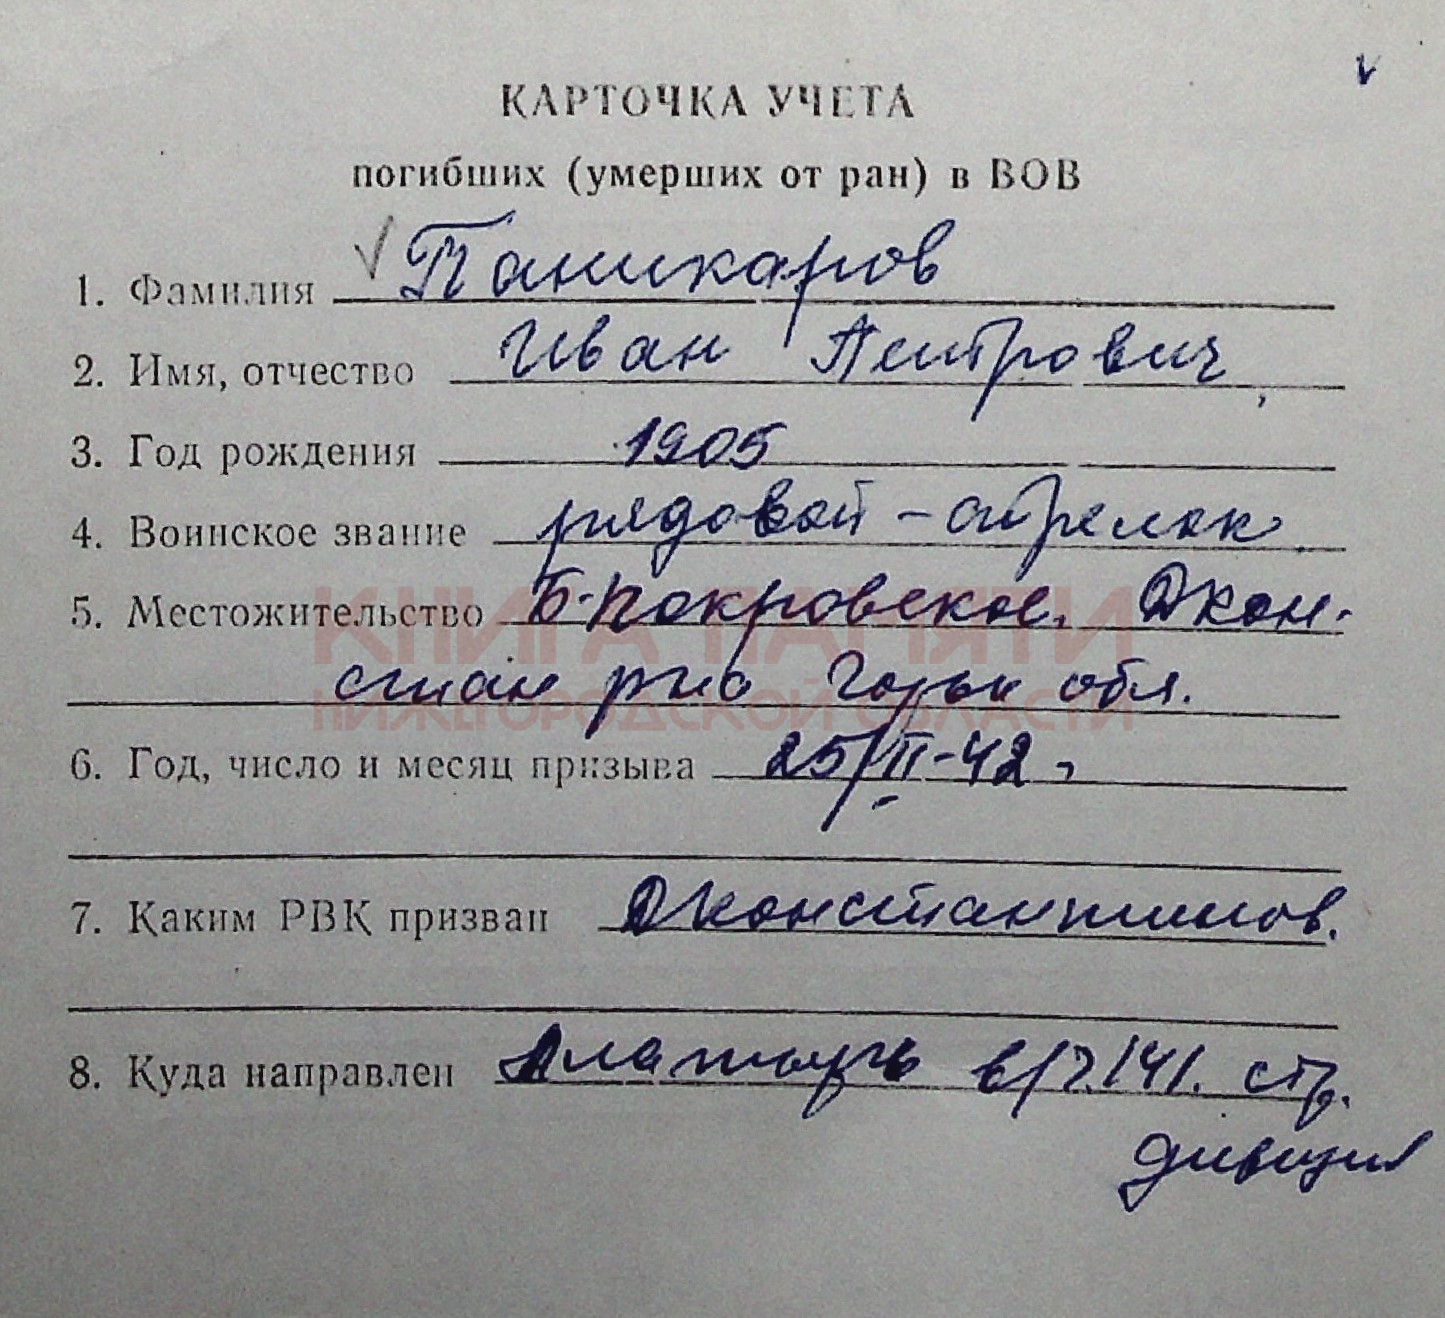 КАРТОЧКА УЧЕТА
погибших (умерших от ран) в ВОВ
1. Фамилия Паникаров
2. Имя, отчество Иван Петрович
3. Год рождения 1905
4. Воинское звание рядовой - стрелок
5. Местожительство Б-Покровское. Дкон-
стан р-на Горьк обл.
КНИГА ПАМЯТИ
НИЖЕГОРОДСКОЙ ОБЛАСТИ
6. Год, число и месяц призыва 25/II-42 г
7. Каким РВК призван Дконстантинов.
8. Куда направлен Алатырь в/ч. 141. стр.
дивизия